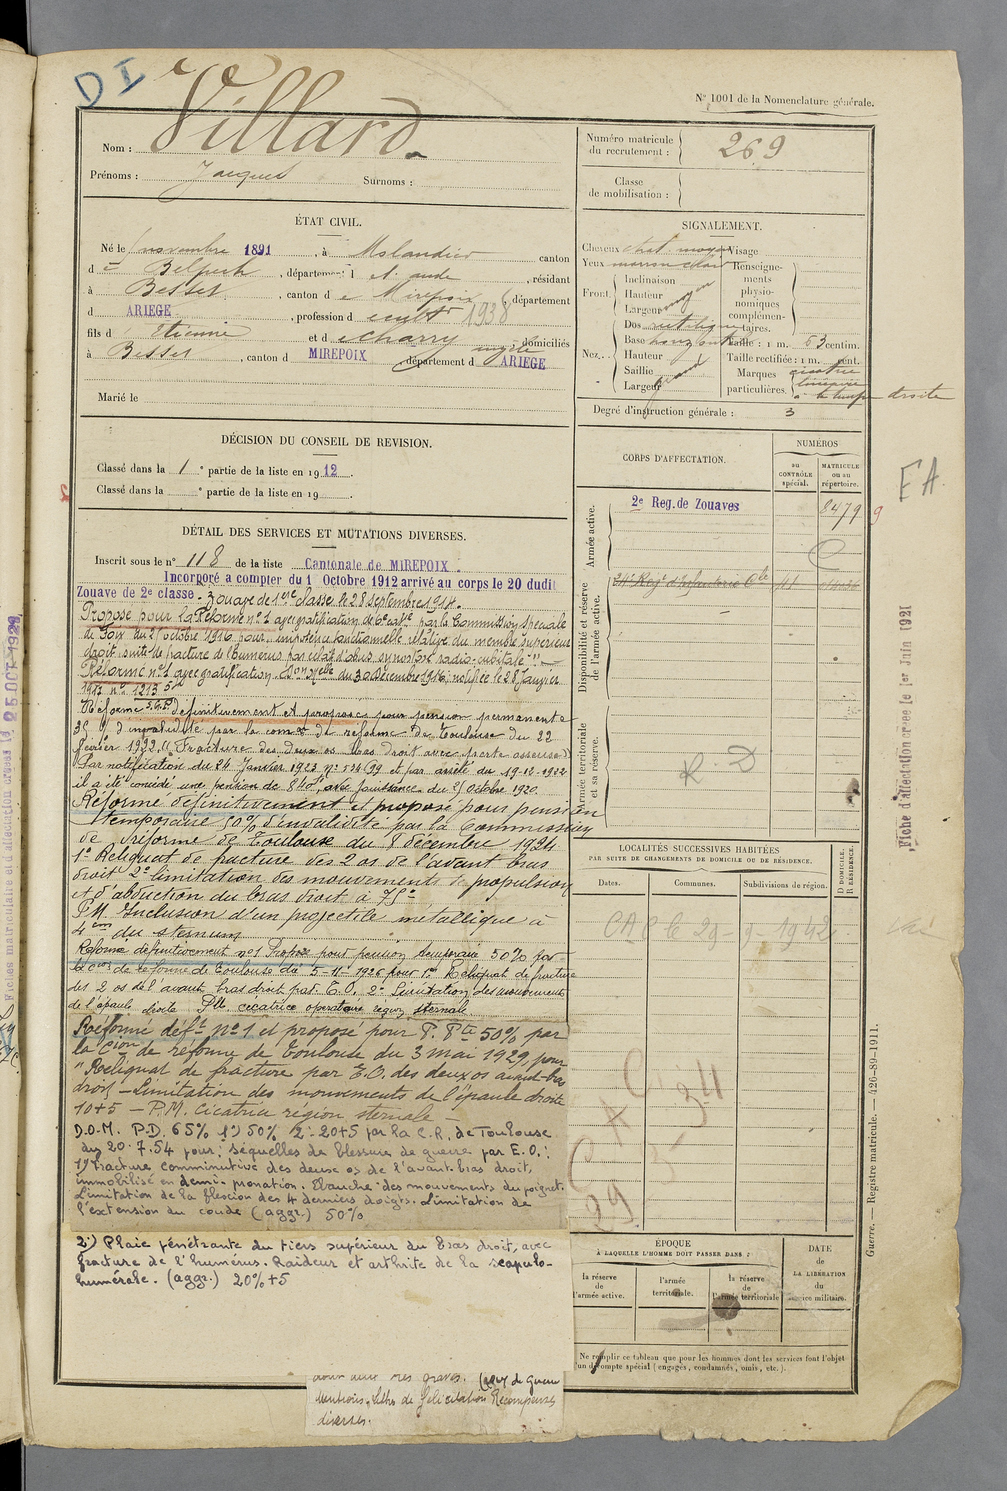 DI
Villard
N° 1001 de la Nomenclature générale.
Nom :
Prénoms : Jacques Surnoms :
Numéro matricule du recrutement : 269
Classe de mobilisation :
ÉTAT CIVIL.
Né le novembre 1891, à Molandier canton
d e Belpech, département d l'Aude, résidant
à Besset, canton d e Mirepoix, département
d ARIEGE, profession d cult 1938
fils d Etienne et d Charry Angèle domiciliés
à Besset, canton d MIREPOIX département d ARIEGE
Marié le
SIGNALEMENT.
Cheveux chat. moyen Visage
Yeux marron clair Renseignements physionomiques complémentaires.
Front. Inclinaison
Hauteur moyen
Largeur
Nez. Dos rectiligne
Base horizontale Taille : 1 m. 63 centim.
Hauteur Taille rectifiée : 1 m. cent.
Saillie grand
Largeur
Marques particulières. cicatrice linéaire à la tempe droite
Degré d'instruction générale : 3
DÉCISION DU CONSEIL DE REVISION.
Classé dans la 1 e partie de la liste en 1912.
Classé dans la e partie de la liste en 19 .
CORPS D'AFFECTATION.
NUMÉROS
au CONTRÔLE spécial.
MATRICULE ou au répertoire.
Armée active.
2e Reg. de Zouaves 8479
9
EA.
Disponibilité et réserve de l'armée active.
Armée territoriale et sa réserve.
R. D
DÉTAIL DES SERVICES ET MUTATIONS DIVERSES.
Inscrit sous le n° 118 de la liste Cantonale de MIREPOIX
Incorporé a compter du 1 Octobre 1912 arrivé au corps le 20 dudit
Zouave de 2e classe - Zouave de 1ere classe le 28 septembre 1914.
Proposé pour la Réforme n° 1 avec gratification de 6e catie par la Commission spéciale
de Foix du 27 octobre 1916 pour "impotence fonctionnelle relative du membre supérieur
droit, suite de fracture de l'humérus par éclat d'obus, synostose radio-cubitale".
Réformé n° 1 avec gratification. Don Melle du 30 Décembre 1916; notifiée le 28 Janvier
1917 n° 1213 5r
Réformé S.G.P. définitivement et proposé pour pension permanente
35 % d'invalidité par la comon de réforme de Toulouse du 22
février 1922, "Fracture des deux os bras droit avec perte osseuse"
Par notification du 24 Janvier 1923 n° 534699 et par arrêté du 19-12-1922
il a été concédé une pension de 840f, avec jouissance du 27 octobre 1920.
Réformé définitivement et proposé pour pension
temporaire 50% d'invalidité par la Commission
de réforme de Toulouse du 8 décembre 1924
1° Reliquat de fracture des 2 os de l'avant bras
droit 2° limitation des mouvements de propulsion
et d'abduction du bras droit à 75°
P.M. Inclusion d'un projectile métallique à
4 cm du sternum
Réformé définitivement n° 1 Proposé pour pension temporaire 50% par
la com de réforme de Toulouse du 5-11-1926 pour 1° Reliquat de fracture
des 2 os de l'avant bras droit par E.O. 2° Limitation des mouvements
de l'épaule droite P.M. cicatrice opératoire région sternale
Réformé déft n° 1 et proposé pour P. Pte 50% par
la Cion de réforme de Toulouse du 3 mai 1929 pour
"Reliquat de fracture par E.O. des deux os avant-bras
droit - Limitation des mouvements de l'épaule droite
10+5 - P.M. Cicatrice région sternale -
D.O.M. P.D. 65% 1°) 50% 2°. 20+5 par la C.R. de Toulouse
du 20.7.54 pour: Séquelles de blessure de guerre par E.O.:
1°) Fracture comminutive des deux os de l'avant-bras droit,
immobilisé en demi-pronation. Ebauche des mouvements du poignet.
Limitation de la flexion des 4 derniers doigts. Limitation de
l'extension du coude (aggr.) 50%
2°) Plaie pénétrante du tiers supérieur du bras droit, avec
fracture de l'humérus. Raideur et arthrite de la scapulo-
humérale. (aggr.) 20%+5
pour une très graves.
de Felicitation Récompenses
diverses.
LOCALITÉS SUCCESSIVES HABITÉES
PAR SUITE DE CHANGEMENTS DE DOMICILE OU DE RÉSIDENCE.
Dates. Communes. Subdivisions de région. D DOMICILE. R RÉSIDENCE.
CAC le 29-9-1942
CAC
5-34
29
ÉPOQUE
À LAQUELLE L'HOMME DOIT PASSER DANS :
la réserve de l'armée active.
l'armée territoriale.
la réserve de l'armée territoriale
DATE de LA LIBÉRATION du service militaire.
Ne remplir ce tableau que pour les hommes dont les services font l'objet
d'un décompte spécial (engagés, condamnés, omis, etc.).
Guerre. — Registre matricule. — 426-89-1911.
Fiche d'affectation créée le 1er Juin 1921
Fiches matriculaire et d'affectation créées le 25 OCT 1929